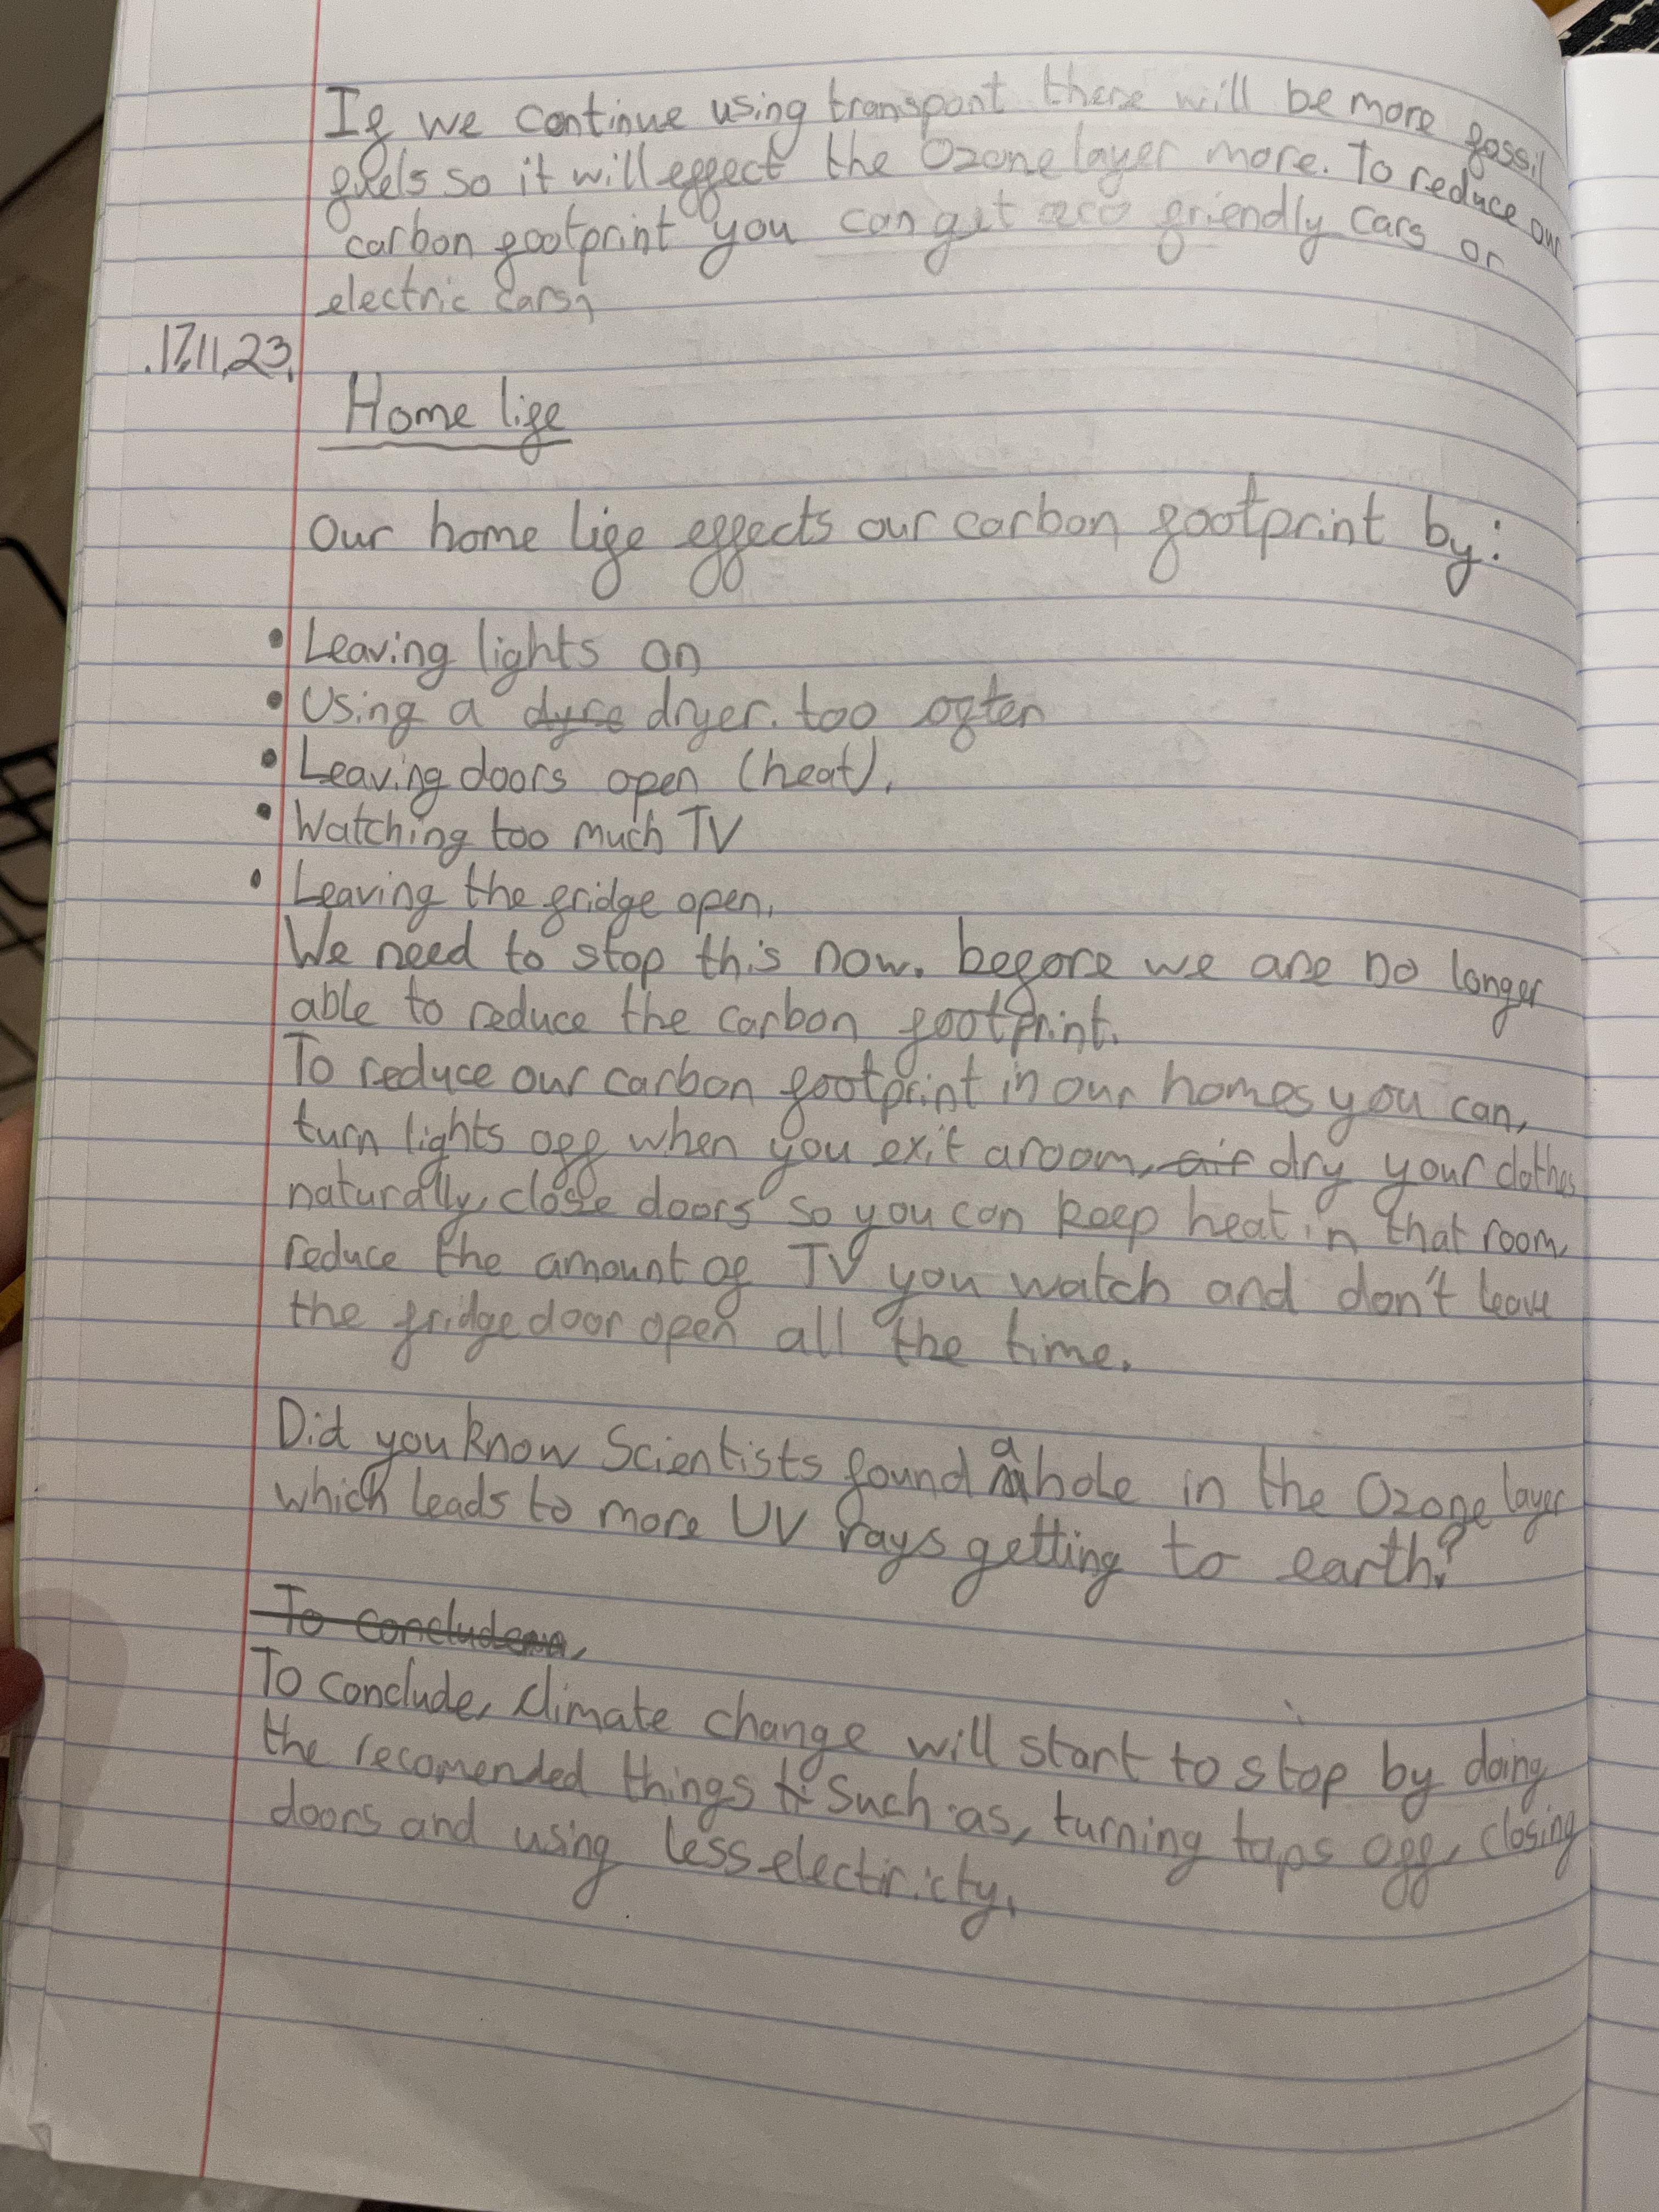 If we continue using transport there will be more fossil
fuels so it will effect the Ozone layer more. To reduce our
carbon footprint you can get eco friendly cars or
electric cars,
.17.11.23.
Home life
Our home life effects our carbon footprint by:
• Leaving lights on
• Using a dyre dryer. too often
• Leaving doors open (heat).
• Watching too much TV
• Leaving the fridge open.
We need to stop this now. before we are no longer
able to reduce the carbon footprint.
To reduce our carbon footprint in our homes you can,
turn lights off when you exit a room, air dry your clothes
naturally, close doors so you can keep heat in that room,
reduce the amount of TV you watch and don't leave
the fridge door open all the time.
Did you know Scientists found a hole in the Ozone layer
which leads to more UV rays getting to earth?
To conclude,
To conclude, climate change will start to stop by doing
the recomended things such as, turning taps off, closing
doors and using less electiricty.